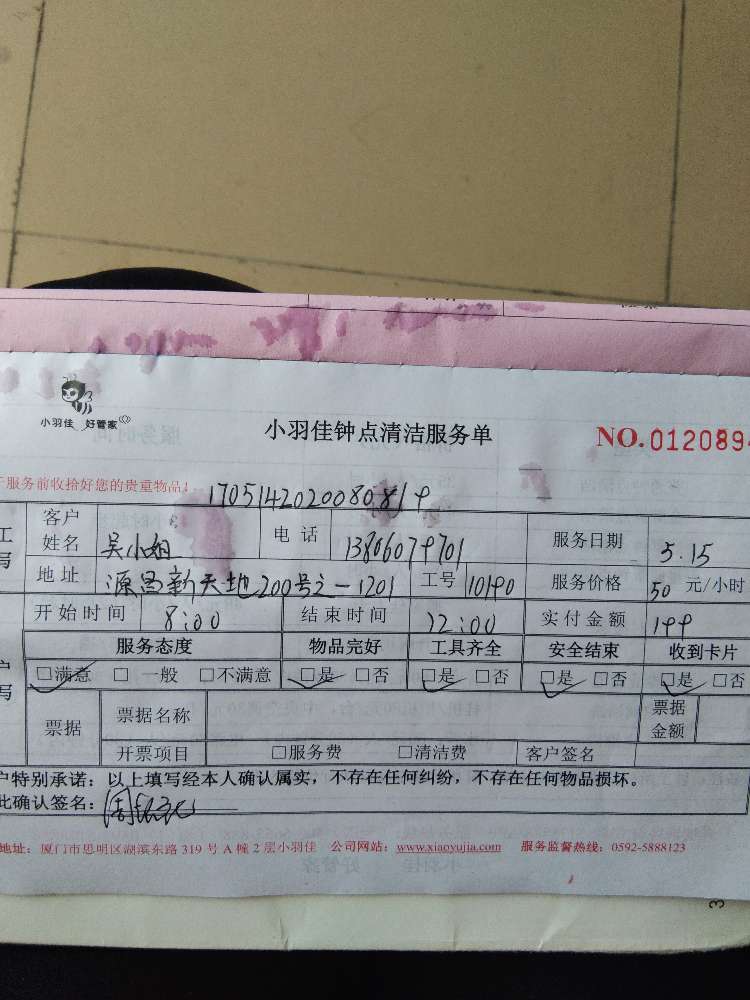 小羽佳 好管家
小羽佳钟点清洁服务单
NO.012089
于服务前收拾好您的贵重物品!
客户姓名 吴小姐 电话 服务日期 5.15
地址 源昌新天地200号之一1201 工号 服务价格 50 元/小时
开始时间 8:00 结束时间 12:00 实付金额
服务态度 物品完好 工具齐全 安全结束 收到卡片
□满意 □一般 □不满意 □是 □否 □是 □否 □是 □否 □是 □否
票据 票据名称 票据金额
开票项目 □服务费 □清洁费 客户签名
户特别承诺:以上填写经本人确认属实,不存在任何纠纷,不存在任何物品损坏。
此确认签名:
地址:厦门市思明区湖滨东路 319 号 A 幢 2 层小羽佳 公司网站:www.xiaoyujia.com 服务监督热线:0592-5888123
3